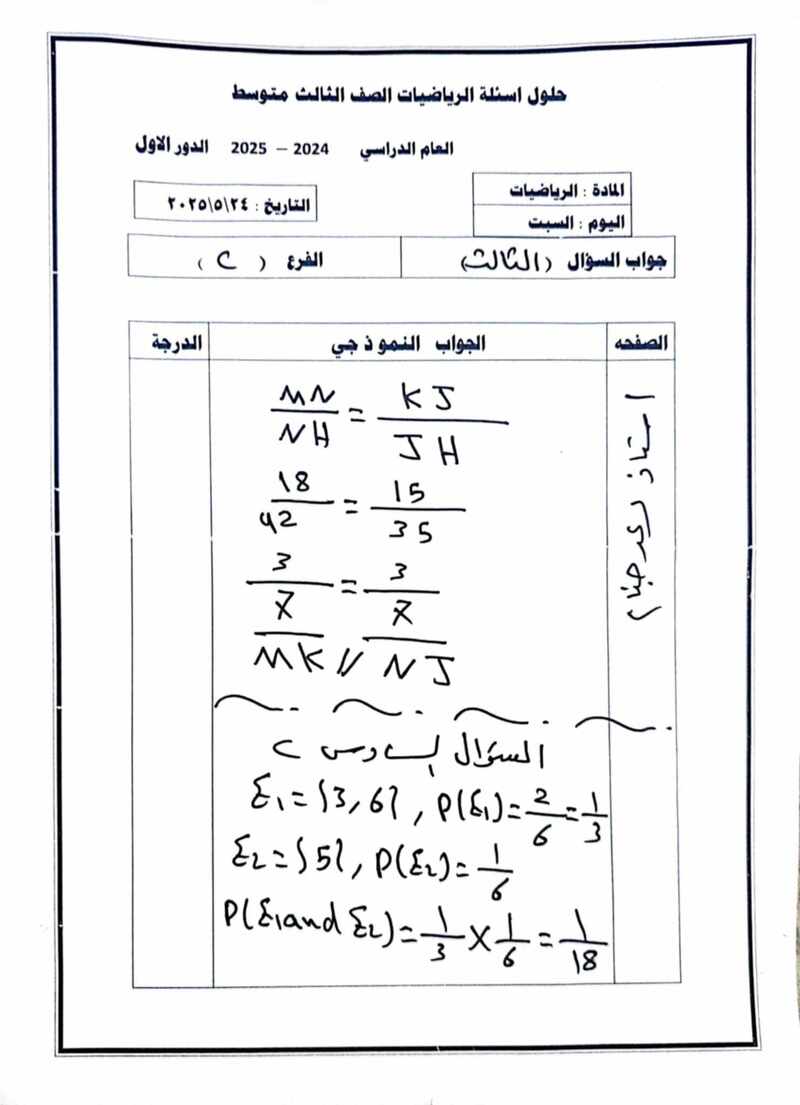 حلول اسئلة الرياضيات الصف الثالث متوسط
العام الدراسي 2024 – 2025 الدور الاول
المادة : الرياضيات
اليوم : السبت
التاريخ : ٢٠٢٥\٥\٢٤
جواب السؤال (الثالث)
الفرع ( C )
الصفحه الجواب النموذجي الدرجة
استاذ
MN/NH = KJ/JH
18/42 = 15/35
3/7 = 3/7
MK // NJ
السؤال السادس C
E₁ = {3, 6}, P(E₁) = 2/6 = 1/3
E₂ = {5}, P(E₂) = 1/6
P(E₁ and E₂) = 1/3 × 1/6 = 1/18